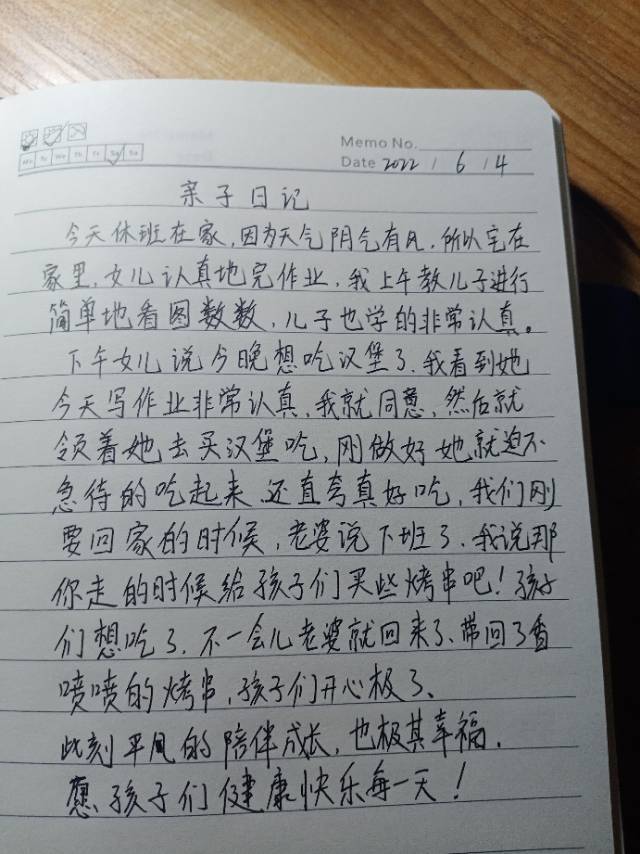 Memo No.
Mo Tu We Th Fr Sa Su
Date 2022 / 6 / 4
亲子日记
今天休班在家,因为天气阴气有风.所以宅在
家里,女儿认真地完作业,我上午教儿子进行
简单地看图数数,儿子也学的非常认真。
下午女儿说今晚想吃汉堡了.我看到她
今天写作业非常认真,我就同意,然后就
领着她去买汉堡吃,刚做好她就迫不
急待的吃起来.还直夸真好吃,我们刚
要回家的时候,老婆说下班了.我说那
你走的时候给孩子们买些烤串吧!孩子
们想吃了.不一会儿老婆就回来了、带回了香
喷喷的烤串,孩子们开心极了、
此刻平凡的陪伴成长,也极其幸福.
愿、孩子们健康快乐每一天!